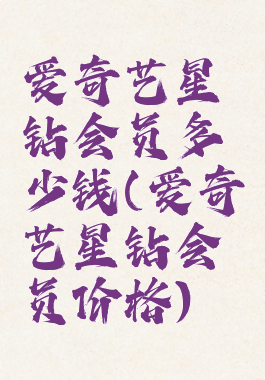 爱奇艺星
钻会员多
少钱(爱奇
艺星钻会
员价格)